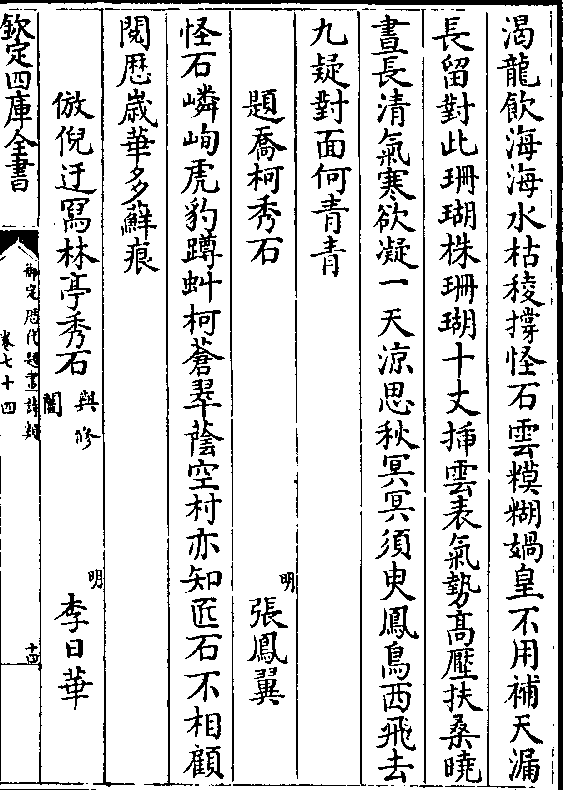 渴龍飲海海水枯稜撐怪石雲糢糊媧皇不用補天漏
長留對此珊瑚株珊瑚十丈揷雲表氣勢髙壓扶桑曉
晝長清氣寒欲凝一天涼思秋冥冥須臾鳳鳥西飛去
九疑對面何青青
題喬柯秀石 明 張鳳翼
怪石嶙峋虎豹蹲虯柯蒼翠蔭空村亦知匠石不相顧
閲歴歳華多蘚痕
倣倪迂冩林亭秀石與修闇 明 李日華
欽定四庫全書
御定歴代題畫詩類
卷七十四
十四